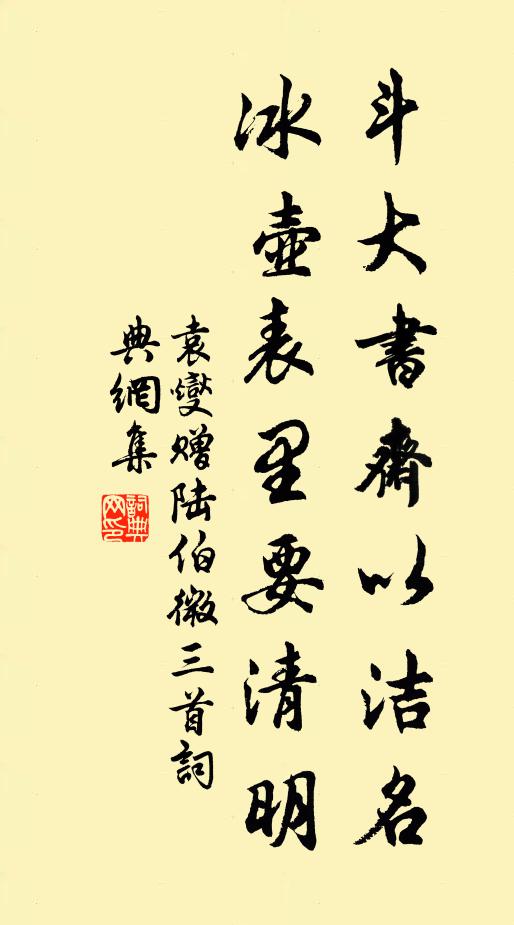 斗大書齋以洁名
冰壺表里要清明
袁燮赠陆伯微三首詞
典網集
詞典网印